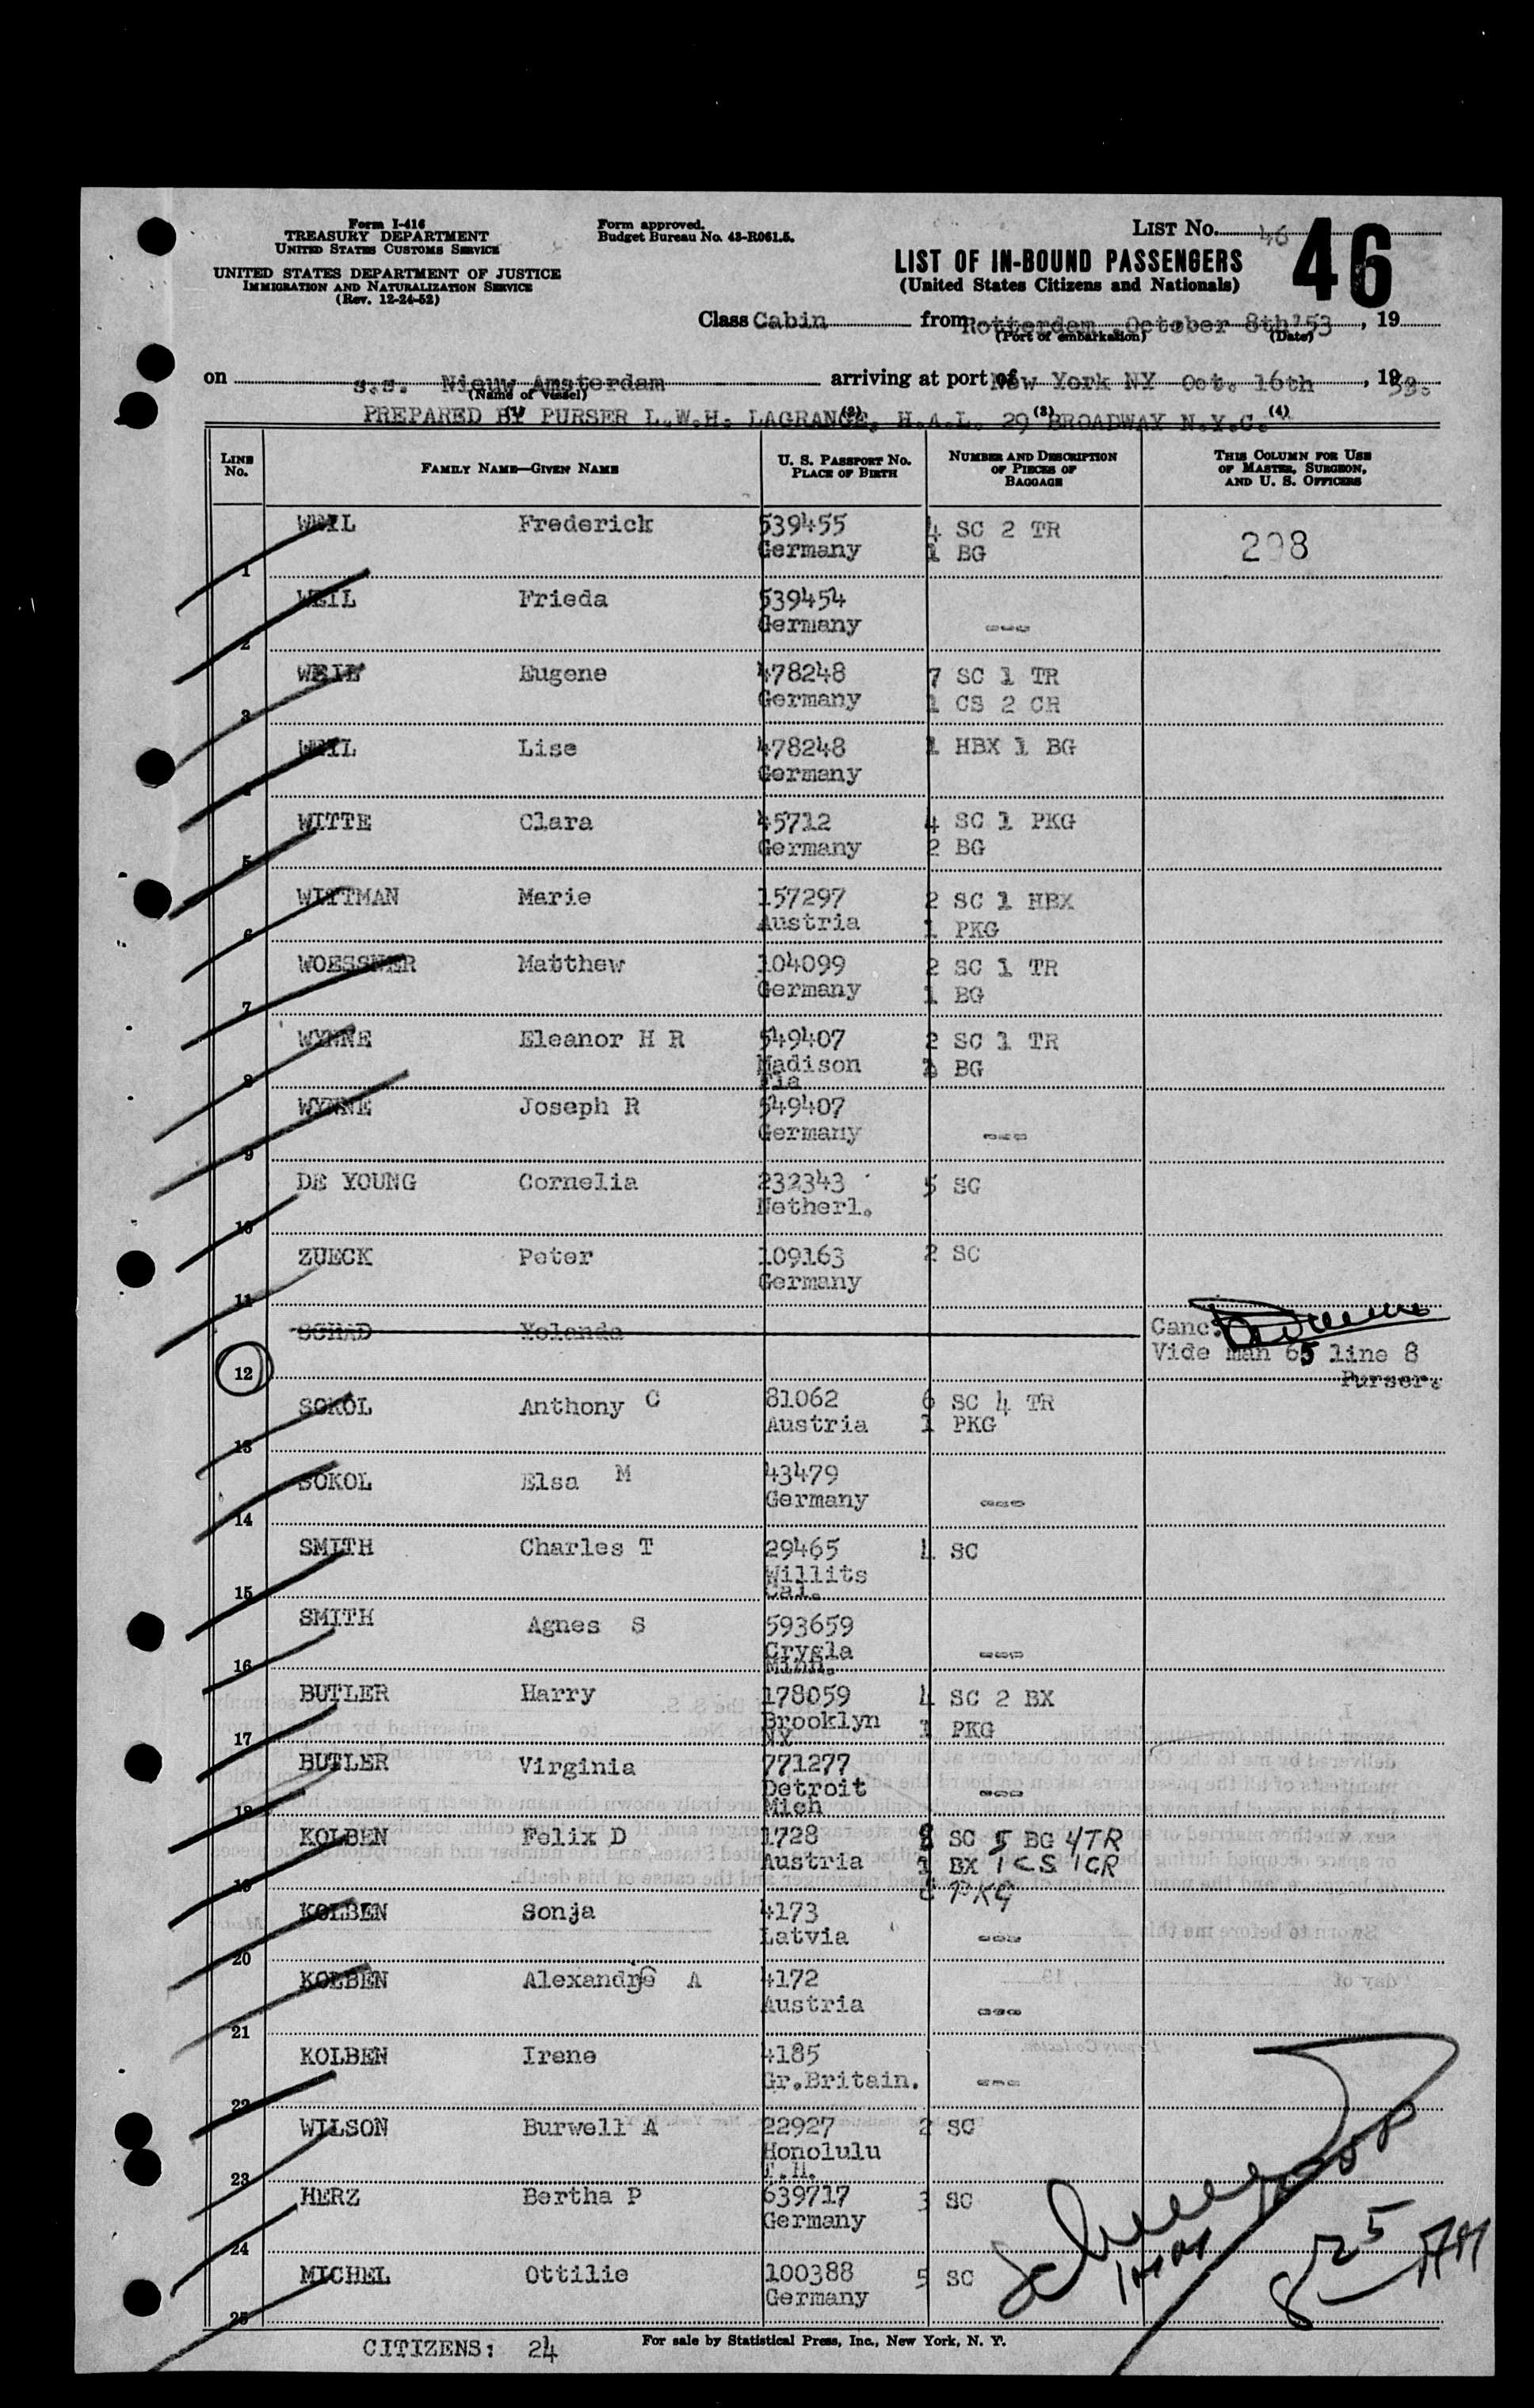 Form I-416
TREASURY DEPARTMENT
UNITED STATES CUSTOMS SERVICE
UNITED STATES DEPARTMENT OF JUSTICE
IMMIGRATION AND NATURALIZATION SERVICE
(Rev. 12-24-52)
Form approved.
Budget Bureau No. 43-R061.5.
LIST No. 46
46
LIST OF IN-BOUND PASSENGERS
(United States Citizens and Nationals)
Class Cabin from Rotterdam October 8th'53, 19
(Port of embarkation) (Date)
on s.s. Nieuw Amsterdam arriving at port of New York NY Oct. 16th, 1953.
(Name of vessel)
PREPARED BY PURSER L.W.H. LAGRANGE, H.A.L. 29 BROADWAY N.Y.C.
(2) (3) (4)
LINE No. FAMILY NAME—GIVEN NAME U. S. PASSPORT No. PLACE OF BIRTH NUMBER AND DESCRIPTION OF PIECES OF BAGGAGE THIS COLUMN FOR USE OF MASTER, SURGEON, AND U. S. OFFICERS
WEIL Frederick 539455 4 SC 2 TR 298
1 Germany 1 BG
WEIL Frieda 539454
2 Germany ---
WEIL Eugene 478248 7 SC 1 TR
3 Germany 1 CS 2 CR
WEIL Lise 478248 1 HBX 1 BG
4 Germany
WITTE Clara 45712 4 SC 1 PKG
5 Germany 2 BG
WITTMAN Marie 157297 2 SC 1 HBX
6 Austria 1 PKG
WOESSNER Matthew 104099 2 SC 1 TR
7 Germany 1 BG
WYNNE Eleanor H R 549407 2 SC 1 TR
8 Madison BG
Fla
WYNNE Joseph R 549407
9 Germany ---
DE YOUNG Cornelia 232343 5 SC
10 Netherl.
ZUECK Peter 109163 2 SC
11 Germany
SCHAD Yolanda Canc.
12 Vide man 65 line 8
Purser.
SOKOL Anthony C 81062 6 SC 4 TR
13 Austria 1 PKG
SOKOL Elsa M 43479
14 Germany ---
SMITH Charles T 29465 4 SC
15 Willits
Cal.
SMITH Agnes S 593659
16 Grygla ---
Minn.
BUTLER Harry 178059 4 SC 2 BX
17 Brooklyn 1 PKG
NY
BUTLER Virginia 771277
18 Detroit ---
Mich
KOLBEN Felix D 1728 8 SC 5 BG 4 TR
19 Austria 1 BX 1 CS 1 CR
PKG
KOLBEN Sonja 4173
20 Latvia ---
KOLBEN Alexandre A 4172
21 Austria ---
KOLBEN Irene 4185
22 Gr.Britain. ---
WILSON Burwell A 22927 2 SC
23 Honolulu
T.H.
HERZ Bertha P 639717 3 SC
24 Germany
MICHEL Ottilie 100388 5 SC
25 Germany
8 25 AM
CITIZENS: 24
For sale by Statistical Press, Inc., New York, N. Y.